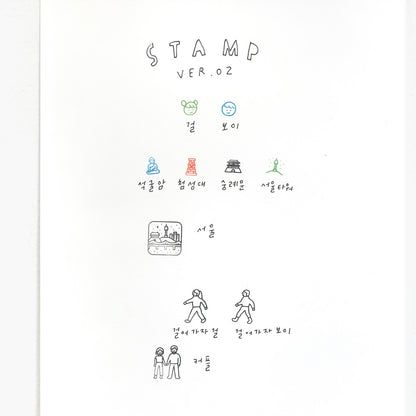 STAMP
VER.02
걸 보이
석굴암 첨성대 숭례문 서울타워
서울
걸어가자걸 걸어가자보이
커플